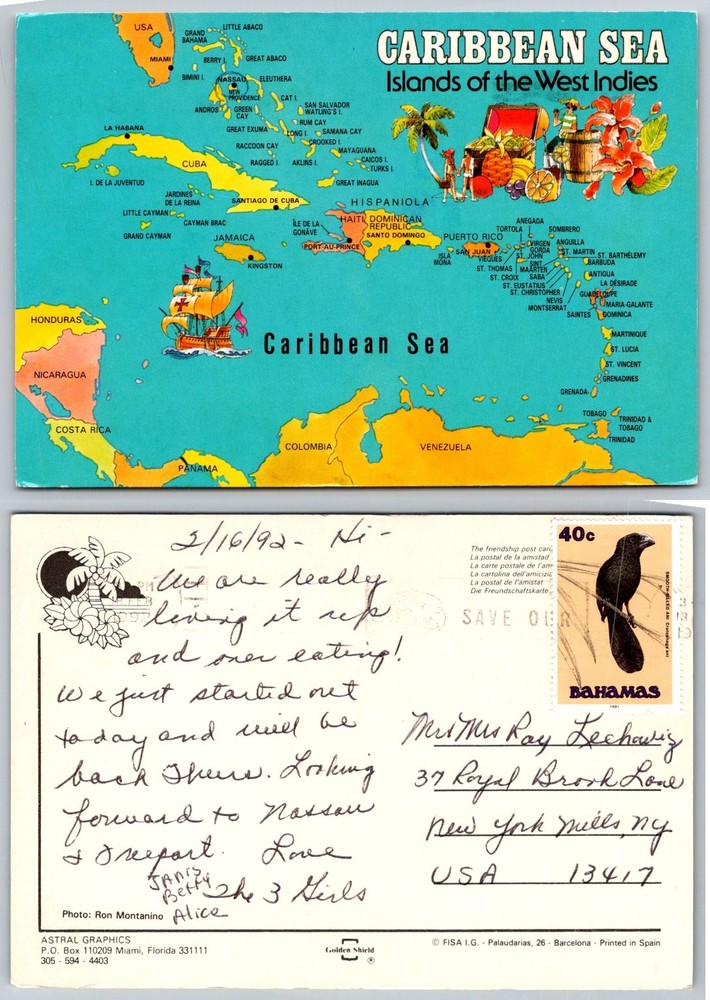 CARIBBEAN SEA
Islands of the West Indies
USA
MIAMI
GRAND BAHAMA
LITTLE ABACO
BERRY I.
GREAT ABACO
BIMINI I.
NASSAU
NEW PROVIDENCE
ELEUTHERA
ANDROS
GREEN CAY
CAT I.
SAN SALVADOR
WATLING'S I.
GREAT EXUMA
RUM CAY
LONG I.
SAMANA CAY
CROOKED I.
RACCOON CAY
MAYAGUANA
RAGGED I.
AKLINS I.
CAICOS I.
TURKS I.
GREAT INAGUA
LA HABANA
CUBA
I. DE LA JUVENTUD
JARDINES DE LA REINA
SANTIAGO DE CUBA
LITTLE CAYMAN
CAYMAN BRAC
GRAND CAYMAN
JAMAICA
KINGSTON
HISPANIOLA
ÎLE DE LA GONÂVE
HAITI
PORT-AU-PRINCE
DOMINICAN REPUBLIC
SANTO DOMINGO
ISLA MONA
PUERTO RICO
SAN JUAN
VIEQUES
ANEGADA
TORTOLA
VIRGEN GORDA
ST. JOHN
ST. THOMAS
ST. CROIX
SOMBRERO
ANGUILLA
ST. MARTIN
SINT MAARTEN
ST. BARTHÉLEMY
SABA
BARBUDA
ST. EUSTATIUS
ST. CHRISTOPHER
ANTIGUA
NEVIS
LA DÉSIRADE
MONTSERRAT
GUADELOUPE
MARIA-GALANTE
SAINTES
DOMINICA
MARTINIQUE
ST. LUCIA
ST. VINCENT
GRENADINES
GRENADA
TOBAGO
TRINIDAD & TOBAGO
TRINIDAD
Caribbean Sea
HONDURAS
NICARAGUA
COSTA RICA
PANAMA
COLOMBIA
VENEZUELA
2/16/92 - Hi -
We are really
living it up
and over eating!
We just started out
today and will be
back Thurs. Looking
forward to Nassau
& Freeport. Love
The 3 Girls
JANIS
Betty
Alice
Photo: Ron Montanino
ASTRAL GRAPHICS
P.O. Box 110209 Miami, Florida 331111
305 - 594 - 4403
Golden Shield
®
© FISA I.G. - Palaudarias, 26 - Barcelona - Printed in Spain
The friendship post card
La postal de la amistad
La carte postale de l'am
La cartolina dell'amicizia
La postal de l'amistat
Die Freundschaftskarte
PM
1992
SAVE OUR
40c
SMOOTH-BILLED ANI Crotophaga ani
BAHAMAS
1991
Mr & Mrs Ray Lechowiz
37 Royal Brook Lane
New York Mills, NY
USA 13417